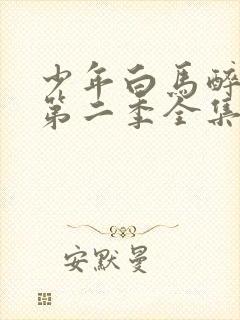 少年白馬醉
第二季全集
安默曼